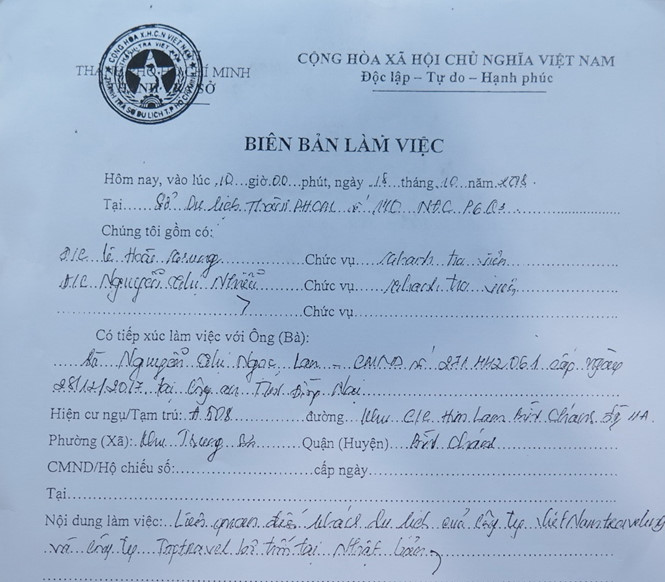 CỘNG HÒA X.H.C.N VIỆT NAM
THANH TRA SỞ DU LỊCH T.P HỒ CHÍ MINH
CỘNG HÒA XÃ HỘI CHỦ NGHĨA VIỆT NAM
MINH Độc lập – Tự do – Hạnh phúc
SỞ
BIÊN BẢN LÀM VIỆC
Hôm nay, vào lúc 10 giờ 00 phút, ngày 18 tháng 10 năm 2018.
Tại Sở Du lịch Thành P.HCM số 140 P6.Q3
Chúng tôi gồm có:
Đ/C Lê Hoài Chức vụ thanh tra viên
Đ/C Nguyễn Thị Chức vụ thanh tra viên
Chức vụ
Có tiếp xúc làm việc với Ông (Bà):
Bà Nguyễn Thị Ngọc Lan – CMND số cấp ngày
28/12/2017 tại Công an Tỉnh Đồng Nai
Hiện cư ngụ/Tạm trú: A508 đường Khu C/C Him Lam 11A
Phường (Xã): Khu Trung Sơn Quận (Huyện) Bình Chánh
CMND/Hộ chiếu số: cấp ngày
Tại
Nội dung làm việc: Liên quan đến khách Du lịch của Công ty
và Công ty Toptravel bỏ trốn tại Nhật Bản